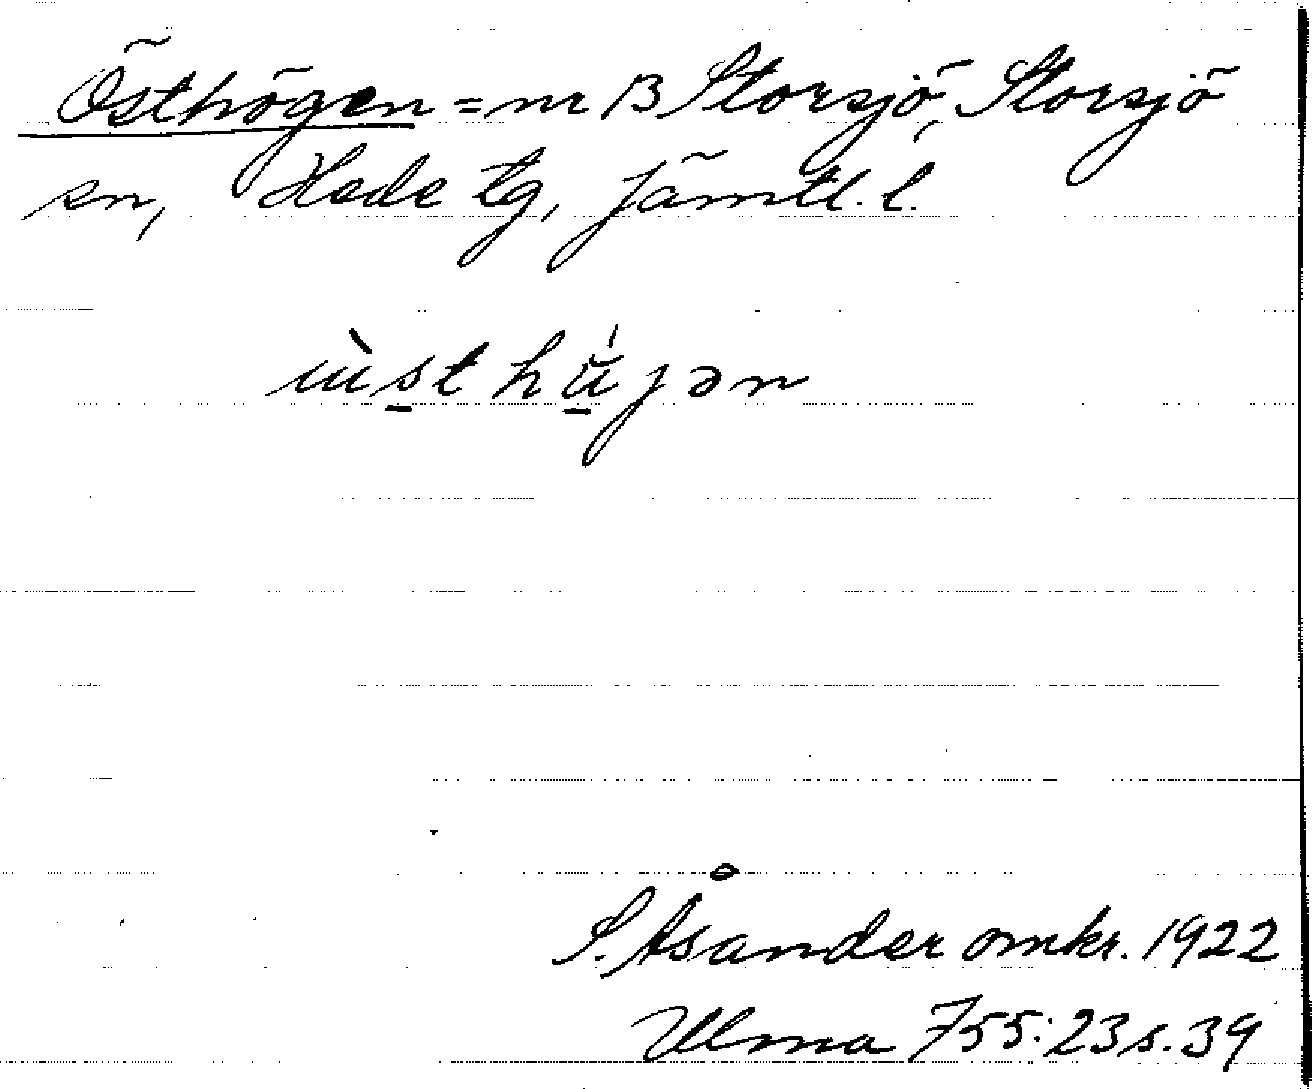 Östhögen = nr 13 Storsjö, Storsjö
sn, Hede tg, Jämtl. l.
S. Åsander omkr. 1922
Ulma 755:23 s. 39